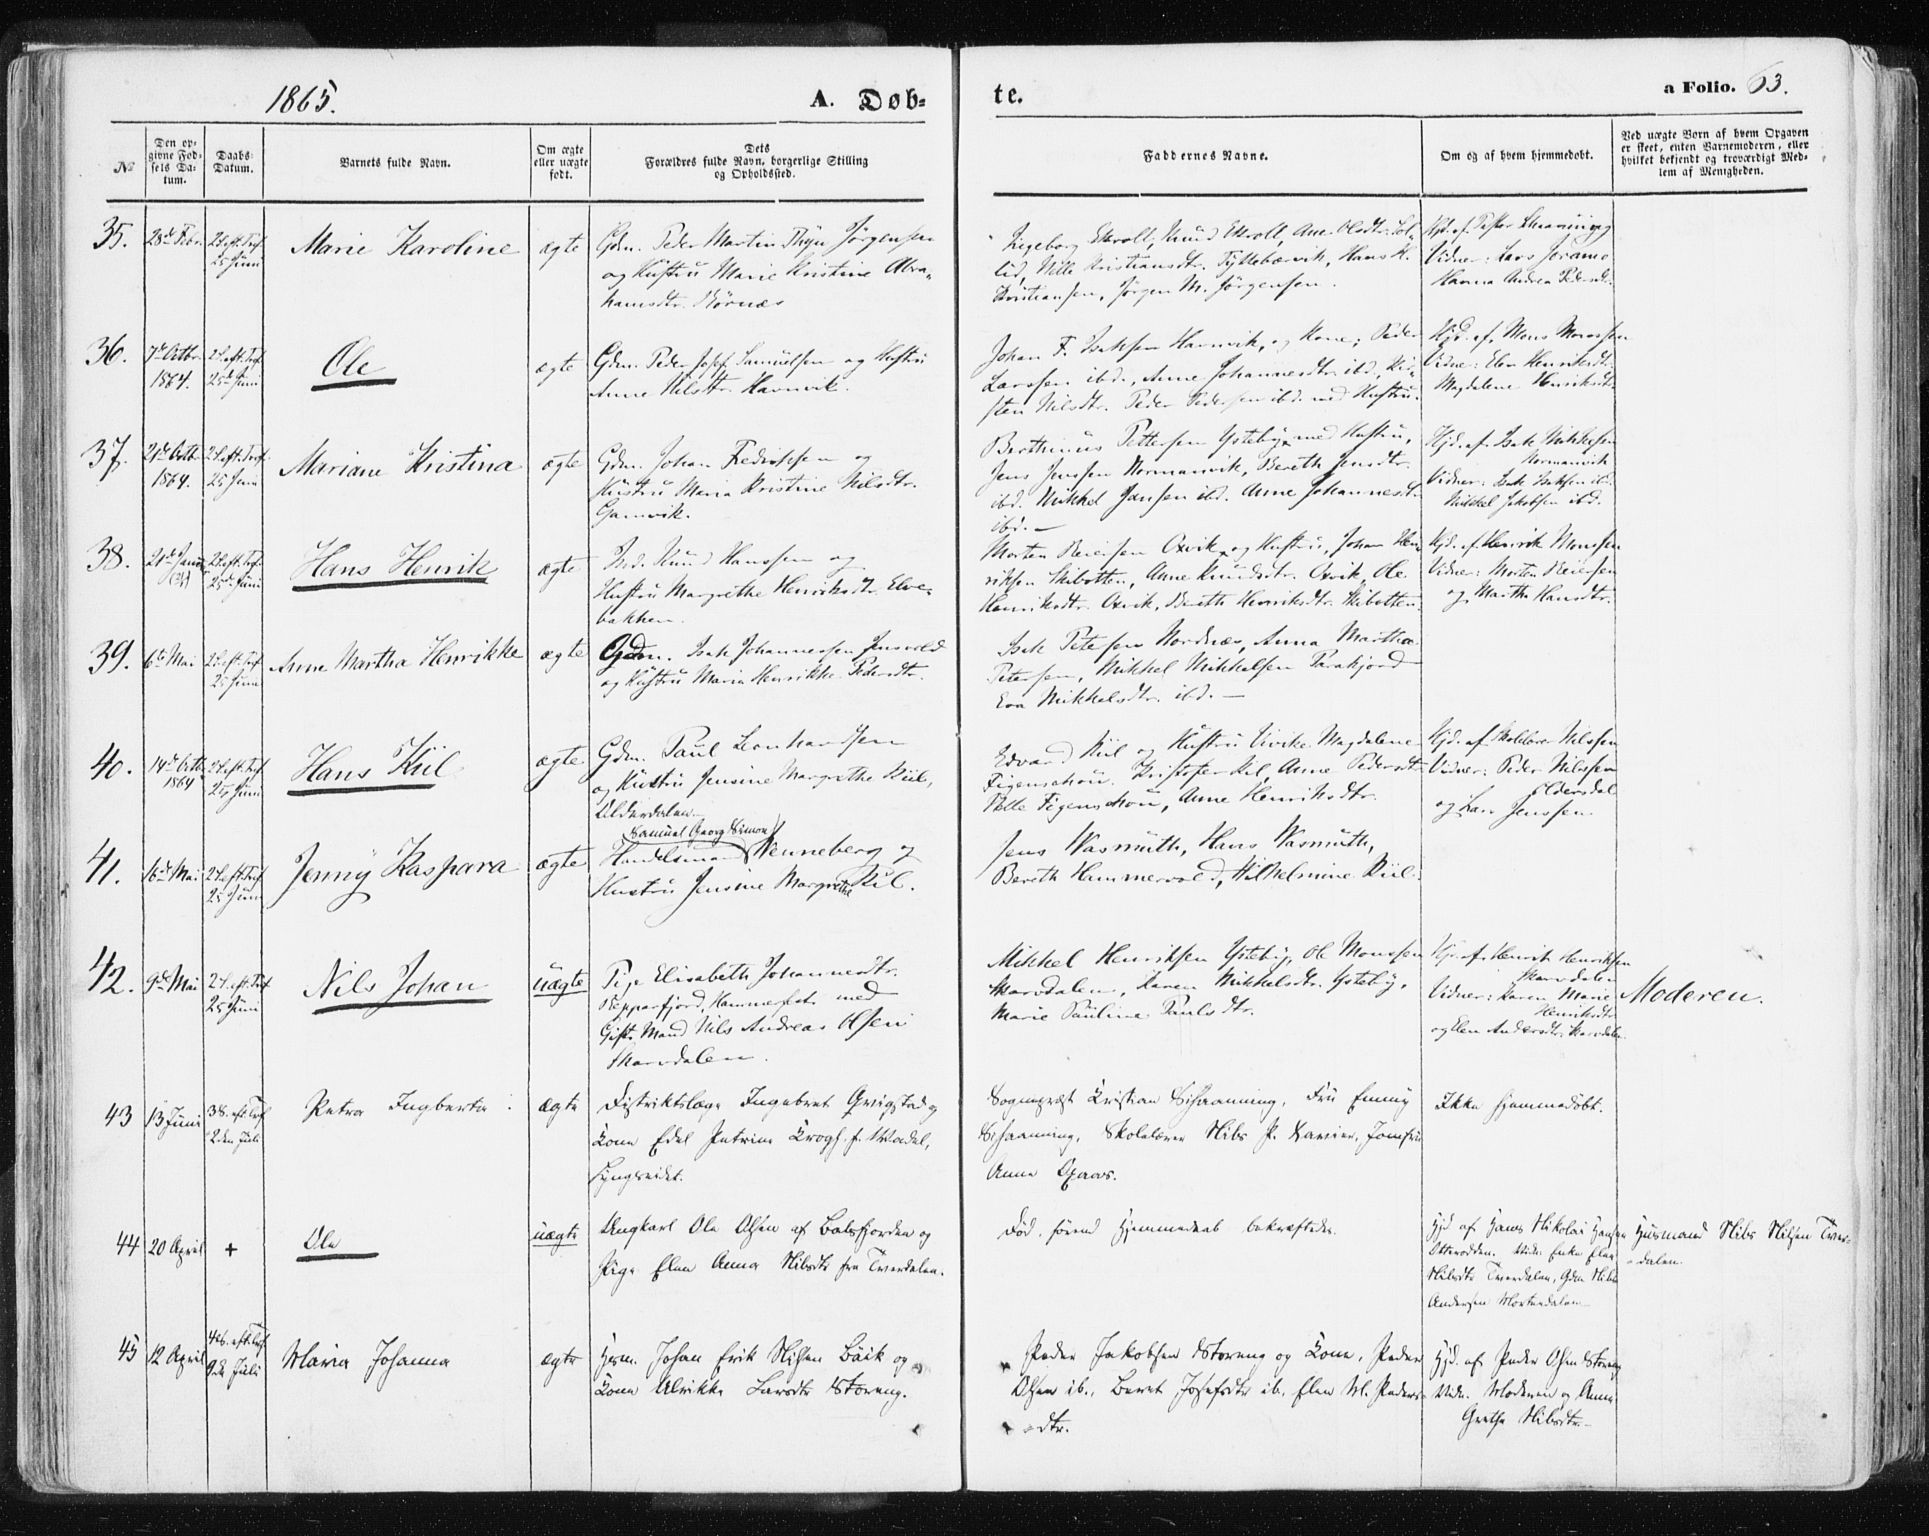 1865.
A. Døb-
te.
a Folio. 63.
№
Den op-
givne Fød-
sels Da-
tum.
Daabs-
Datum.
Barnets fulde Navn.
Om ægte
eller uægte
født.
Dets
Forældres fulde Navn, borgerlige Stilling
og Opholdssted.
Faddernes Navne.
Om og af hvem hjemmedøbt.
Ved uægte Børn af hvem Opgaven
er skeet, enten Barnemoderen, eller
hvilket bekjendt og troværdigt Med-
lem af Menigheden.
35.
28de Febr.
2 S. eft. Tref.
25 Juni
Marie Karoline
ægte
Gdm. Peder Martin Thyu Jørgensen
og Hustru Marie Kristine Abra-
hamsdtr.
Ingeborg Knud
Nille Kristiansdtr. Hans K.
Kristiansen, Jørgen M. Jørgensen.
Hjd. af
Vidner: Lars
Hanna Andrea Pedersdtr.
36.
7de Octbr.
1864.
2 S. eft. Tref.
25de Juni
Ole
ægte
Gdm. Peder Josef Samuelsen og Hustru
Anne Nilsdtr. Havnvik.
Johan F. Isaksen Havnvik, og Kone, Peder
Larssen ibd., Anne Johannesdtr. ibd., Kir-
sten Nilsdtr. Peder Pedersen ibd. med Hustru.
Hjd. af Mons Monssen
Vidner: Elen Henriksdtr.
Magdalene Henriksdtr.
37.
21de Octbr.
1864.
2 S. eft. Tref.
25 Juni
Mariane Kristina
ægte
Gdm. Johan Fredriksen og
Hustru Maria Kristine Nilsdtr.
Gamvik.
Berthinus Pettersen Ysteby med Hustru,
Jens Jenssen Normannvik, Bereth Jensdtr.
ibd. Mikkel Jansen ibd. Anne Johannesdtr.
ibd. —
Hjd. af Isak Mikkelsen
Normanvik
Vidner: Isak Isaksen ibd.
Mikkel Jakobsen ibd.
38.
21de Januar
2 S. eft. Tref.
25de Juni
Hans Henrik
ægte
Ind. Knud Hanssen og
Hustru Margrethe Henriksdtr. Elve-
bakken.
Morten Reiersen Oxvik og Hustru, Johan Hen-
riksen Skibotten, Anne Knudsdtr. Oxvik, Ole
Henriksdtr. Oxvik, Bereth Henriksdtr. Skibotten.
Hjd. af Henrik Monssen
Vidner: Morten Reiersen
og Martha Hansdtr.
39.
6te Mai
2 S. eft. Tref.
25 Juni
Anne Martha Henrikke
ægte
Gdm. Isak Johannessen Jensvold
og Hustru Maria Henrikke Pedersdtr.
Isak Petersen Nordnæs, Anna Martha
Petersen, Mikkel Mikkelsen Parakjord
Eva Mikkelsdtr. ibd. —
40.
14de Octbr.
1864
2 S. eft. Tref.
25 Juni
Hans Kiil
ægte
Gdm. Paul Leonhardsen
og Hustru Jensine Margrethe Kiil,
Olderdalen
Edvard Kiil og Hustru Vivike Magdalene
Figenschou. Kristofer Kiil, Anne Pedersdtr.
Figenschou, Anne Henriksdtr.
Hjd. af Skolelærer Nilssen
Vidner: Peder Nilssen
Olderdal
og Lars Jenssen
41.
16de Mai
2 S. eft. Tref.
25 Juni
Jenny Kaspara
ægte
Samuel Georg Simon
Handelsmand Wenneberg og
Hustru Jensine Margrethe Kiil.
Jens Wasmuth, Hans Wasmuth,
Bereth Hammervold, Wilhelmine Kiil.
42.
9de Mai
2 S. eft. Tref.
25 Juni
Nils Johan
uægte
Pige Elisabeth Johannesdtr.
Repparfjord, Hammerfest med
Gift Mand Nils Andreas Olsen
Skarvdalen.
Mikkel Henriksen Ysteby, Ole Monssen
Skarvdalen, Karen Mikkelsdtr. Ysteby,
Marie Pauline Paulsdtr.
Hjd. af Henrik Henriksen
Skarvdalen
Vidner: Karen Marie
Henriksdtr.
og Elen Andersdtr. Skarvdalen
Moderen.
43
13 Juni
3 S. eft. Tref
2den Juli
Petra Ingberta
ægte
Distriktslæge Ingebret Qvigstad og
Kone Edel Petrine Krogh f. Wadel,
Lyngseidet.
Sogneprest Kristian Schaanning, Fru Emmy
Schaanning, Skolelærer Nils P. Xavier, Jomfru
Anna
Ikke hjemmedøbt.
44
20 April
+
Ole
uægte
Ungkarl Ole Olsen af Balsfjorden og
Pige Elen Anna Nilsdtr fra Tverdalen.
Død førend Hjemmedaab bekræftedes.
Hjd af Hans Nikolai Hansen
Vidn. Enke Elen
Nilsdtr Tverdalen, Gdm Nils
Andersen
Husmand Nils Nilsen Tver-
dalen.
45
12 April
4 S. eft. Tref
9de Juli
Maria Johanna
ægte
Gdm. Johan Erik Nilsen Bäik og
Kone Ulrikke Larsdtr Storeng.
Peder Jakobsen Storeng og Kone, Peder
Olsen ib., Beret Josefsdtr ib. Elen M. Peders-
dtr.
Hjd. af Peder Olsen Storeng
Vidn. Moderen og Anne
Grethe Nilsdtr.